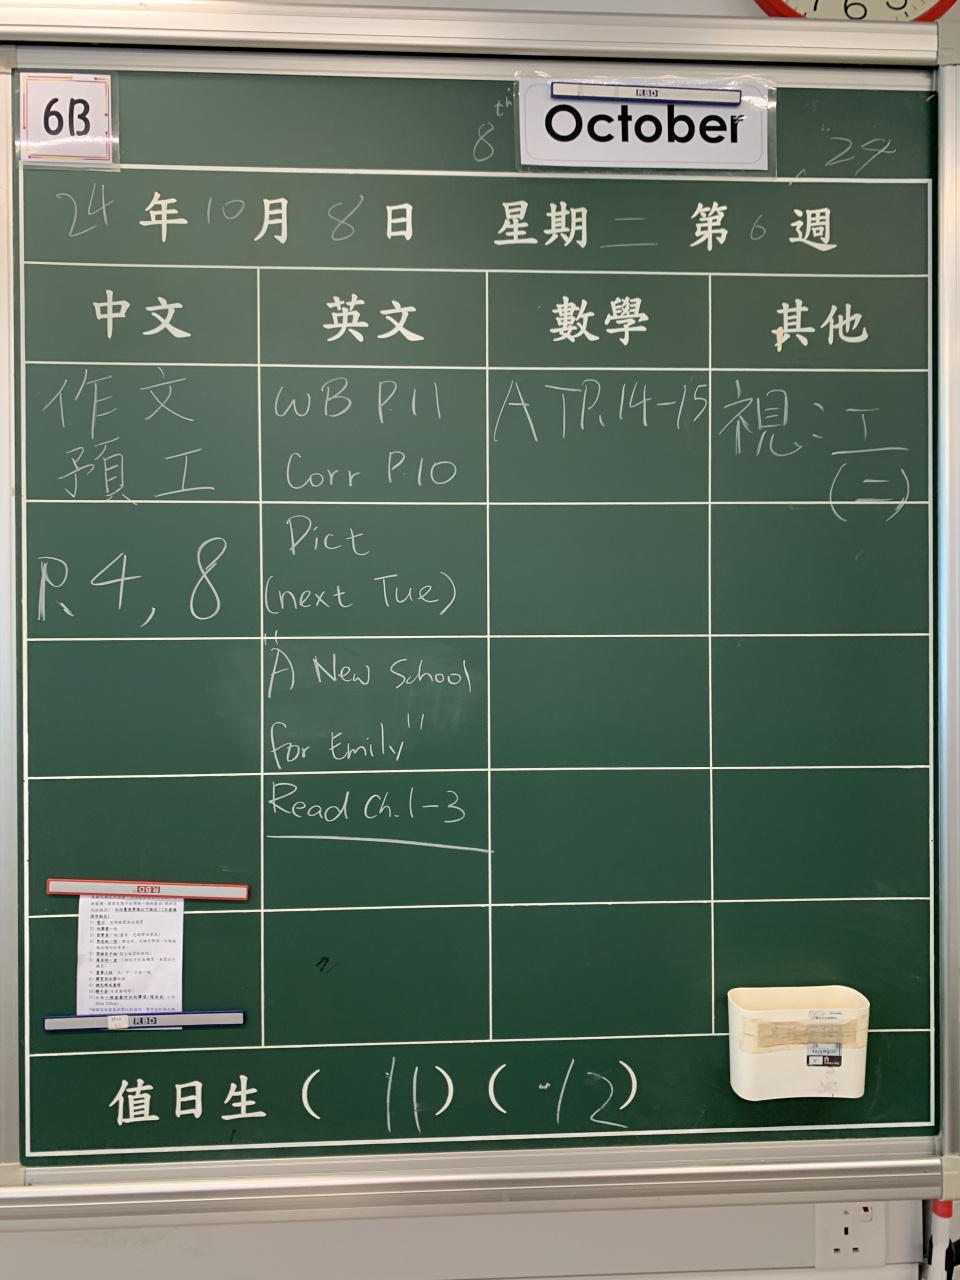 6B
8th October 24
24年10月8日 星期二 第6週
中文 英文 數學 其他
作文
預工
P.4, 8
WB P.11
Corr P.10
Dict
(next Tue)
"A New School
for Emily"
Read Ch.1-3
AT P.14-15
視:工
(二)
值日生( 11 )( 12 )
RBD
RBD
RBD